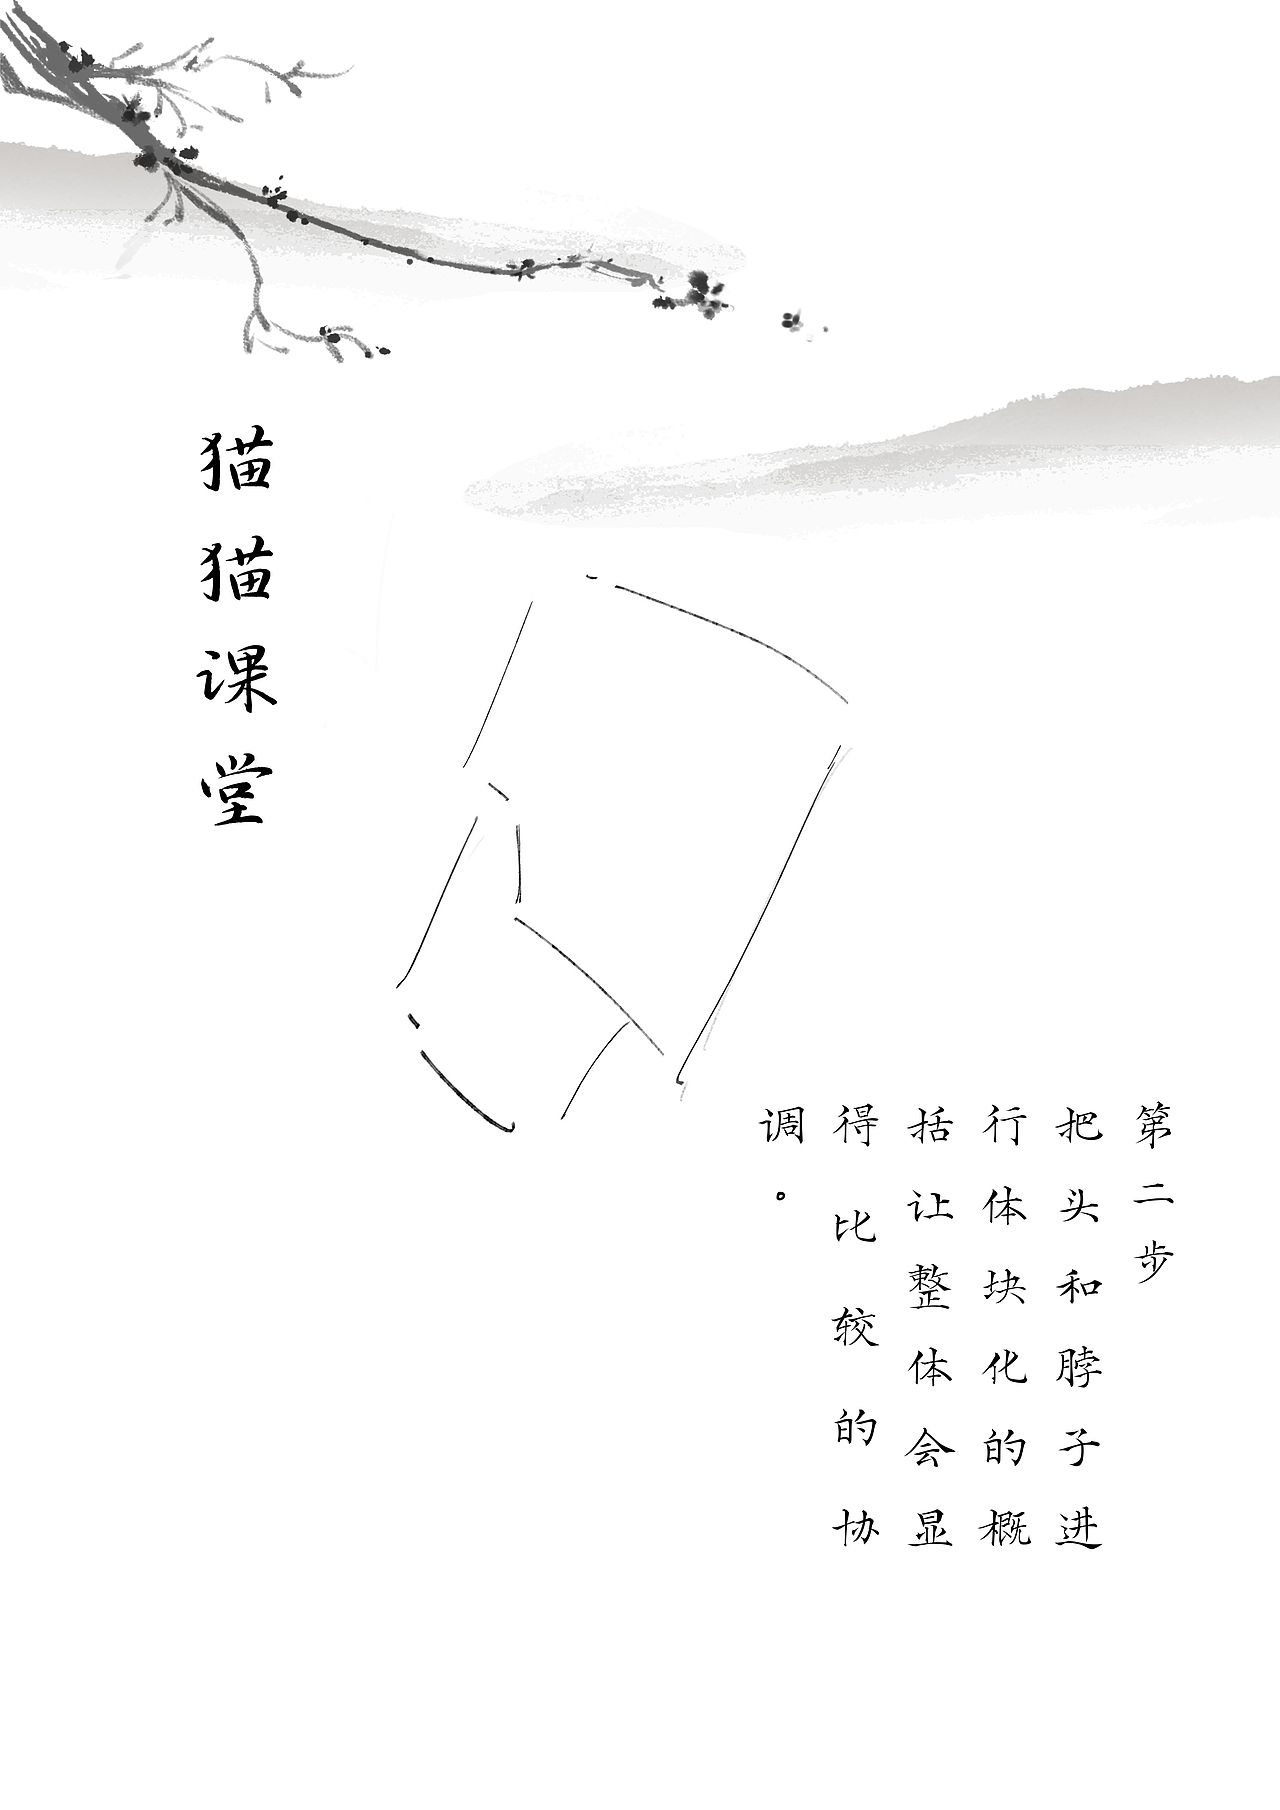 猫猫课堂
第二步
把头和脖子进
行体块化的概
括让整体会显
得比较的协
调。